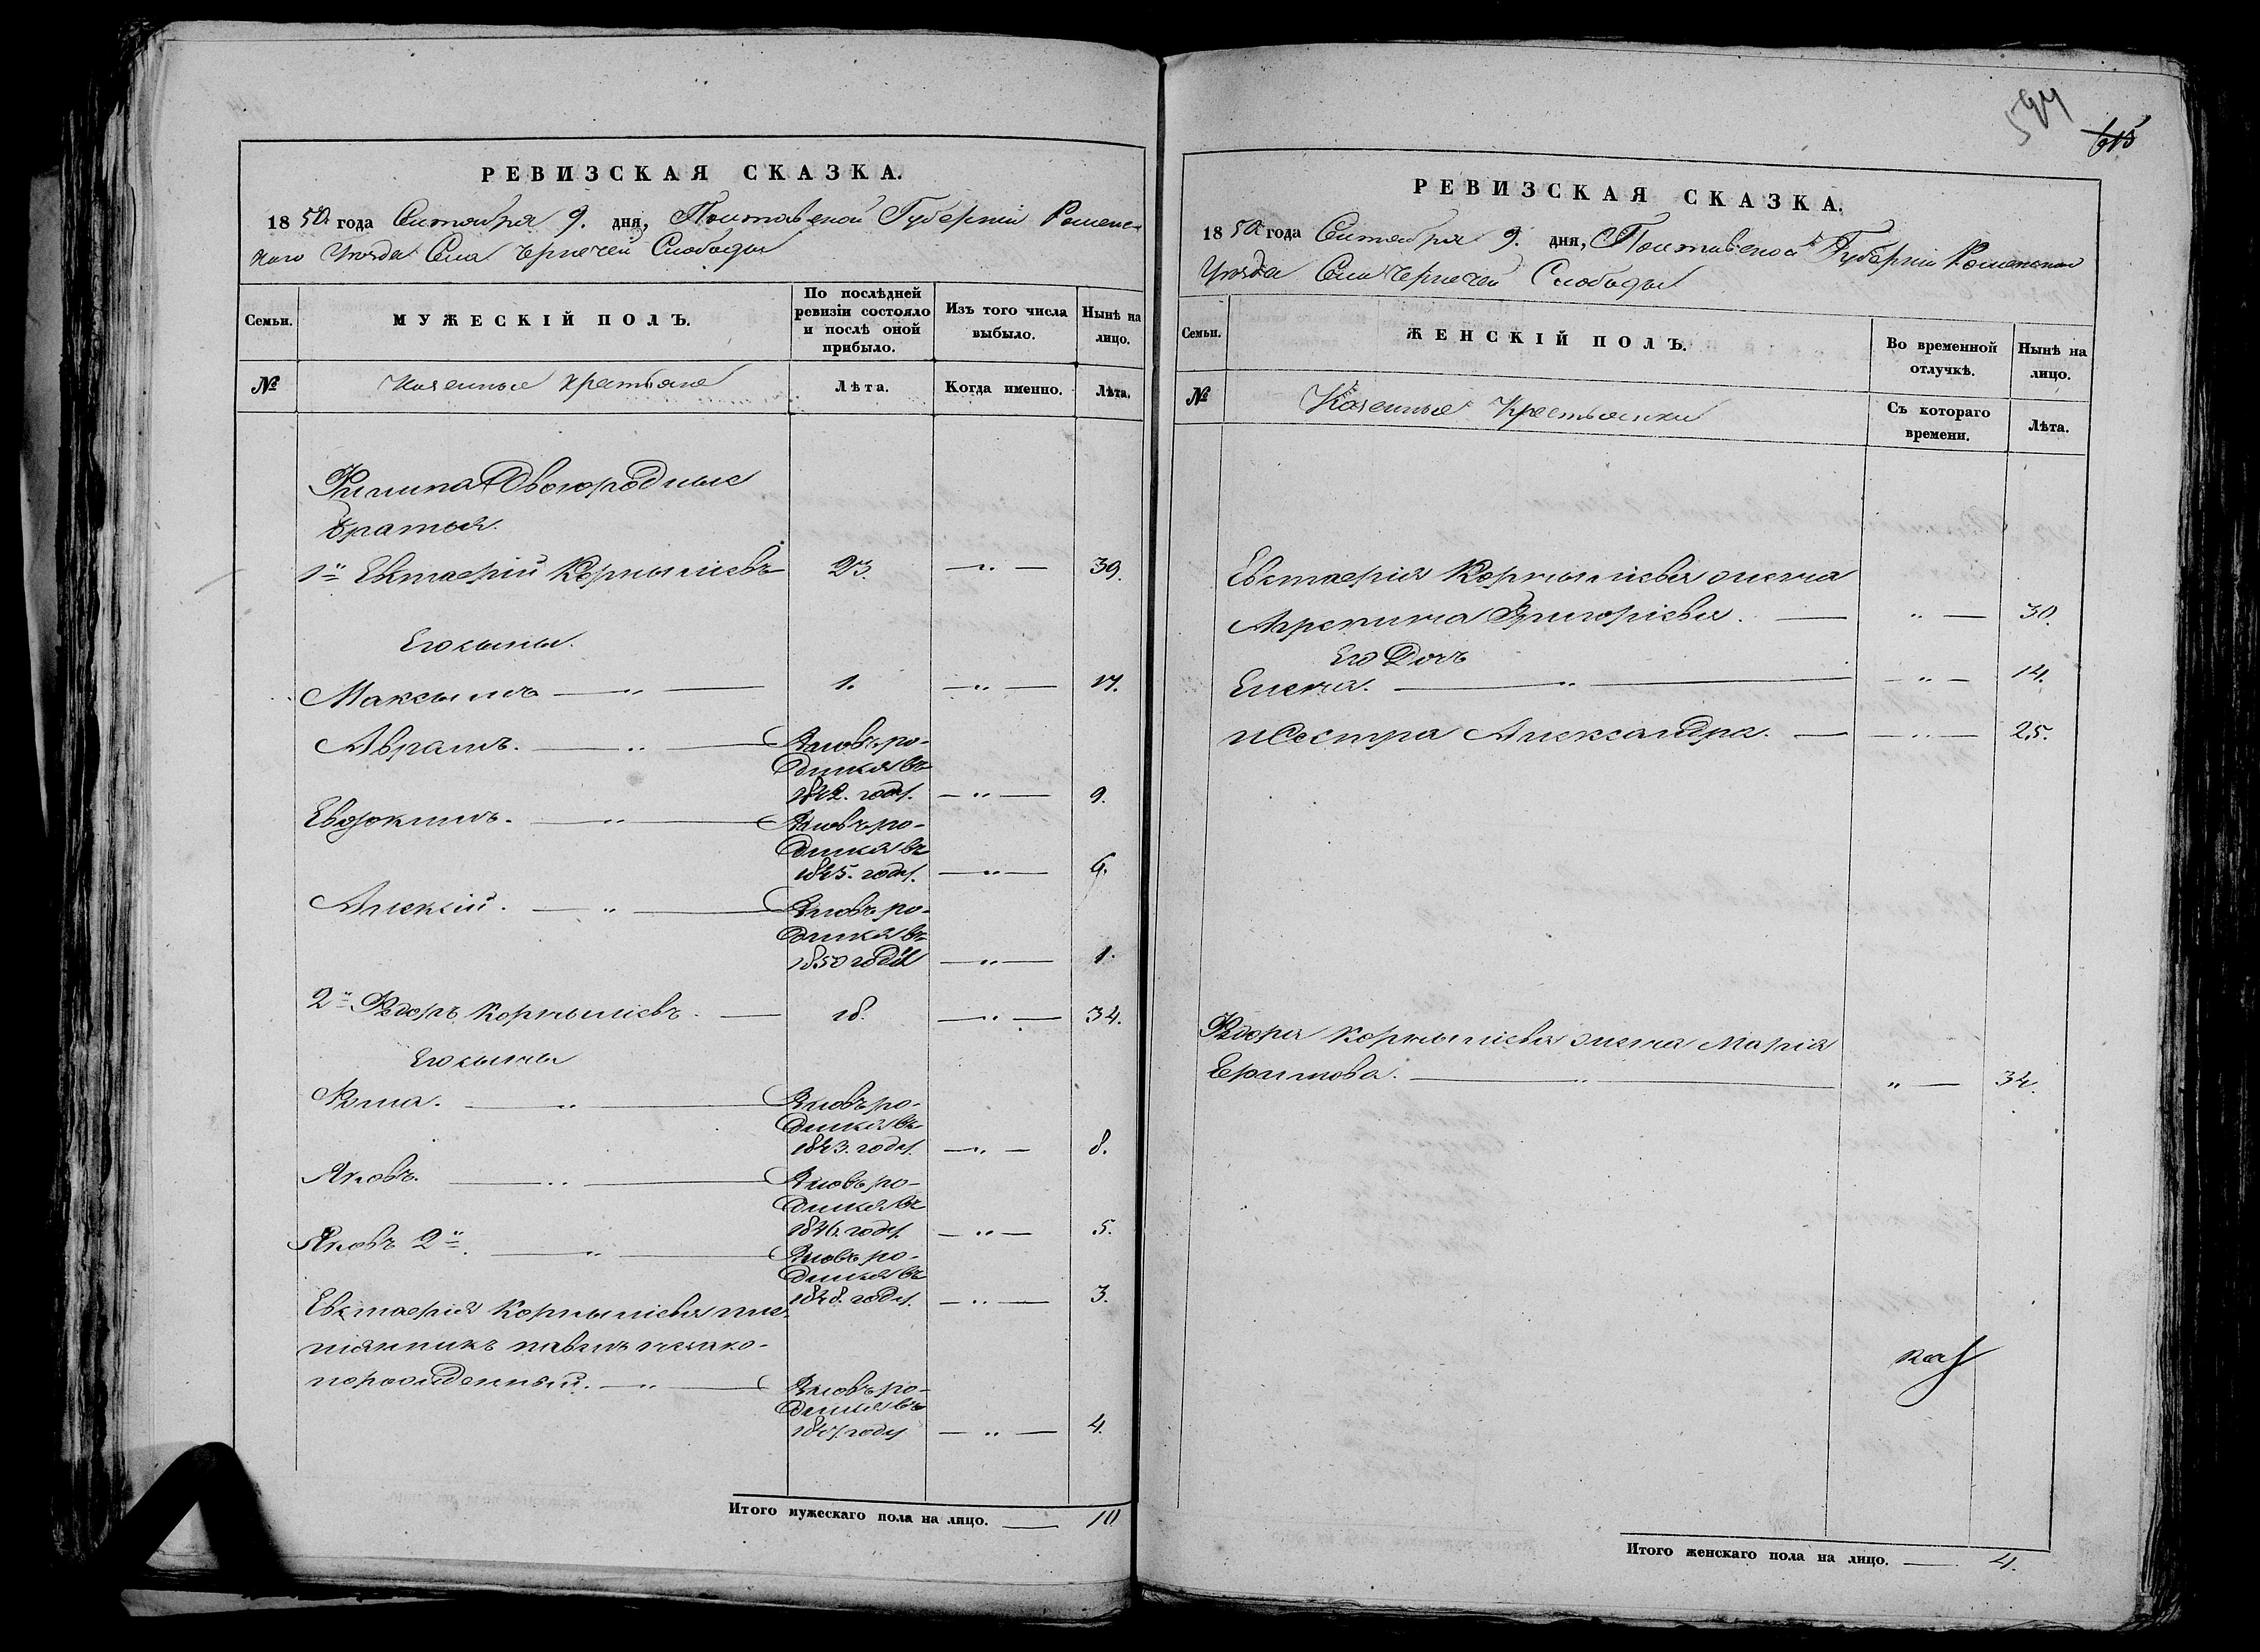 РЕВИЗСКАЯ СКАЗКА.
1850 года Сентября 9. дня, Полтавской Губерніи Роменс-
каго Уезда Села Чернечей Слободы
Семьи.
МУЖЕСКІЙ ПОЛЪ.
По послѣдней ревизіи состояло и послѣ оной прибыло.
Изъ того числа выбыло.
Нынѣ на лицо.
№
Казенные крестьяне
Лѣта.
Когда именно.
Лѣта.
Филипа Двоюродные
братья.
1й Евстаерій Корнылієвъ 23. — „ — 39.
Его сыны.
Максымъ — „ — 1. — „ — 17.
Аврамъ. — „ — Вновь ро-
дился въ
1842. году. — „ — 9.
Евдокимъ. — „ — Вновь ро-
дился въ
1845. году. — „ — 6.
Алексій. — „ — Вновь ро-
дился въ
1850 году — „ — 1.
2й Фѣдоръ Корнылієвъ. — 18. — „ — 34.
Его сыны
Фома. — „ — Вновь ро-
дился въ
1843. году. — „ — 8.
Яковъ. — „ — Вновь ро-
дился въ
1846. году. — „ — 5.
Яковъ 2й. — „ — Вновь ро-
дился въ
1848. году. — „ — 3.
Евстаерія Корнылієва пле-
мянникъ Павелъ незако-
норожденный. — „ — Вновь ро-
дился въ
1847. году — „ — 4.
Итого мужескаго пола на лицо. — 10
594
615
РЕВИЗСКАЯ СКАЗКА.
1850 года Сентября 9. дня, Полтавской Губерніи Роменскаго
Уезда Села Чернечей Слободы
Семьи.
ЖЕНСКІЙ ПОЛЪ.
Во временной отлучкѣ.
Нынѣ на лицо.
№
Казенные Крестьянки
Съ котораго времени.
Лѣта.
Евстаерія Корнылієва жена
Григорієва. — „ — 30.
Его Дочь
Елена. — „ — — „ — 14.
и Сестра Александра. — — „ — 25.
Фѣдора Корнылієва жена Марія
Ефимова. — „ — „ — 34.
Итого женскаго пола на лицо. — 4.